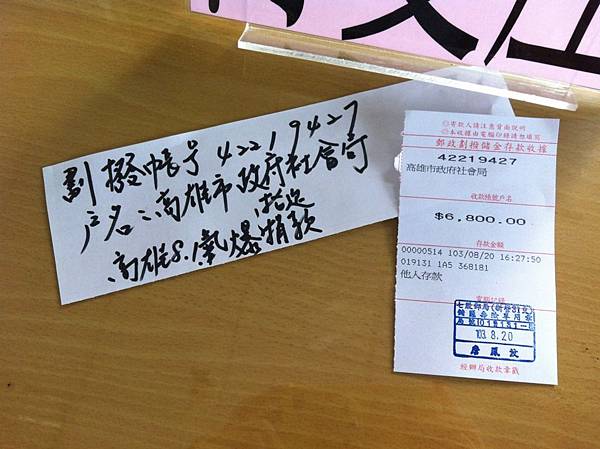 劃撥帳号 42219427
户名：高雄市政府社會局
指定
高雄8.1氣爆捐款
◎寄款人請注意背面說明
◎本收據由電腦印錄請勿填寫
郵政劃撥儲金存款收據
42219427
高雄市政府社會局
收款帳號戶名
$6,800.00
存款金額
00000514 103/08/20 16:27:50
019131 1A5 368181
他人存款
電腦記錄
103.8.20
經辦局收款章戳